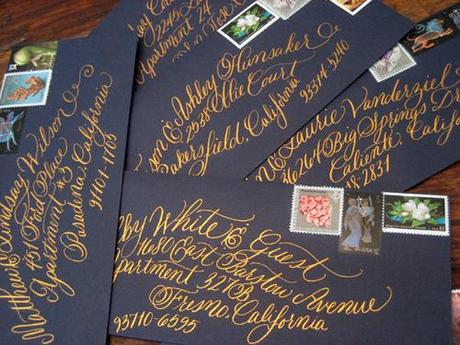 Matthew & Lindsay Wilson
451 Ford Place
Apartment #3
Pasadena, California
91101-1768
Cosby
2245
Apartment 24
& Ashley Hunsaker
2538 Ellie Court
Bakersfield, California
93314-5240
& Laurie Vanderziel
Big Springs
Caliente, California
-2831
White & Guest
7680 East Barstow Avenue
Apartment 327B
Fresno, California
93710-6595